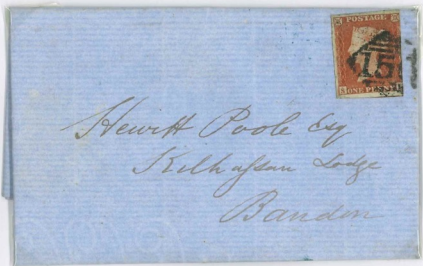 POSTAGE
15
ONE PENNY
Hewitt Poole Esq
Kilhassan Lodge
Bandon